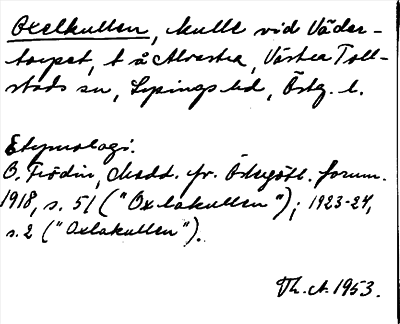 Oxelkullen, kulle vid Väder-
torpet, t å Alvastra, Västra Toll-
stads sn, Lysings hd, Östg. l.
Etymologi.
O. Frödin, Medd. fr. Östergötl. fornm.
1918, s. 51 ("Oxlakullen"); 1923-24,
s. 2 ("Oxlakullen").
Th. A. 1953.